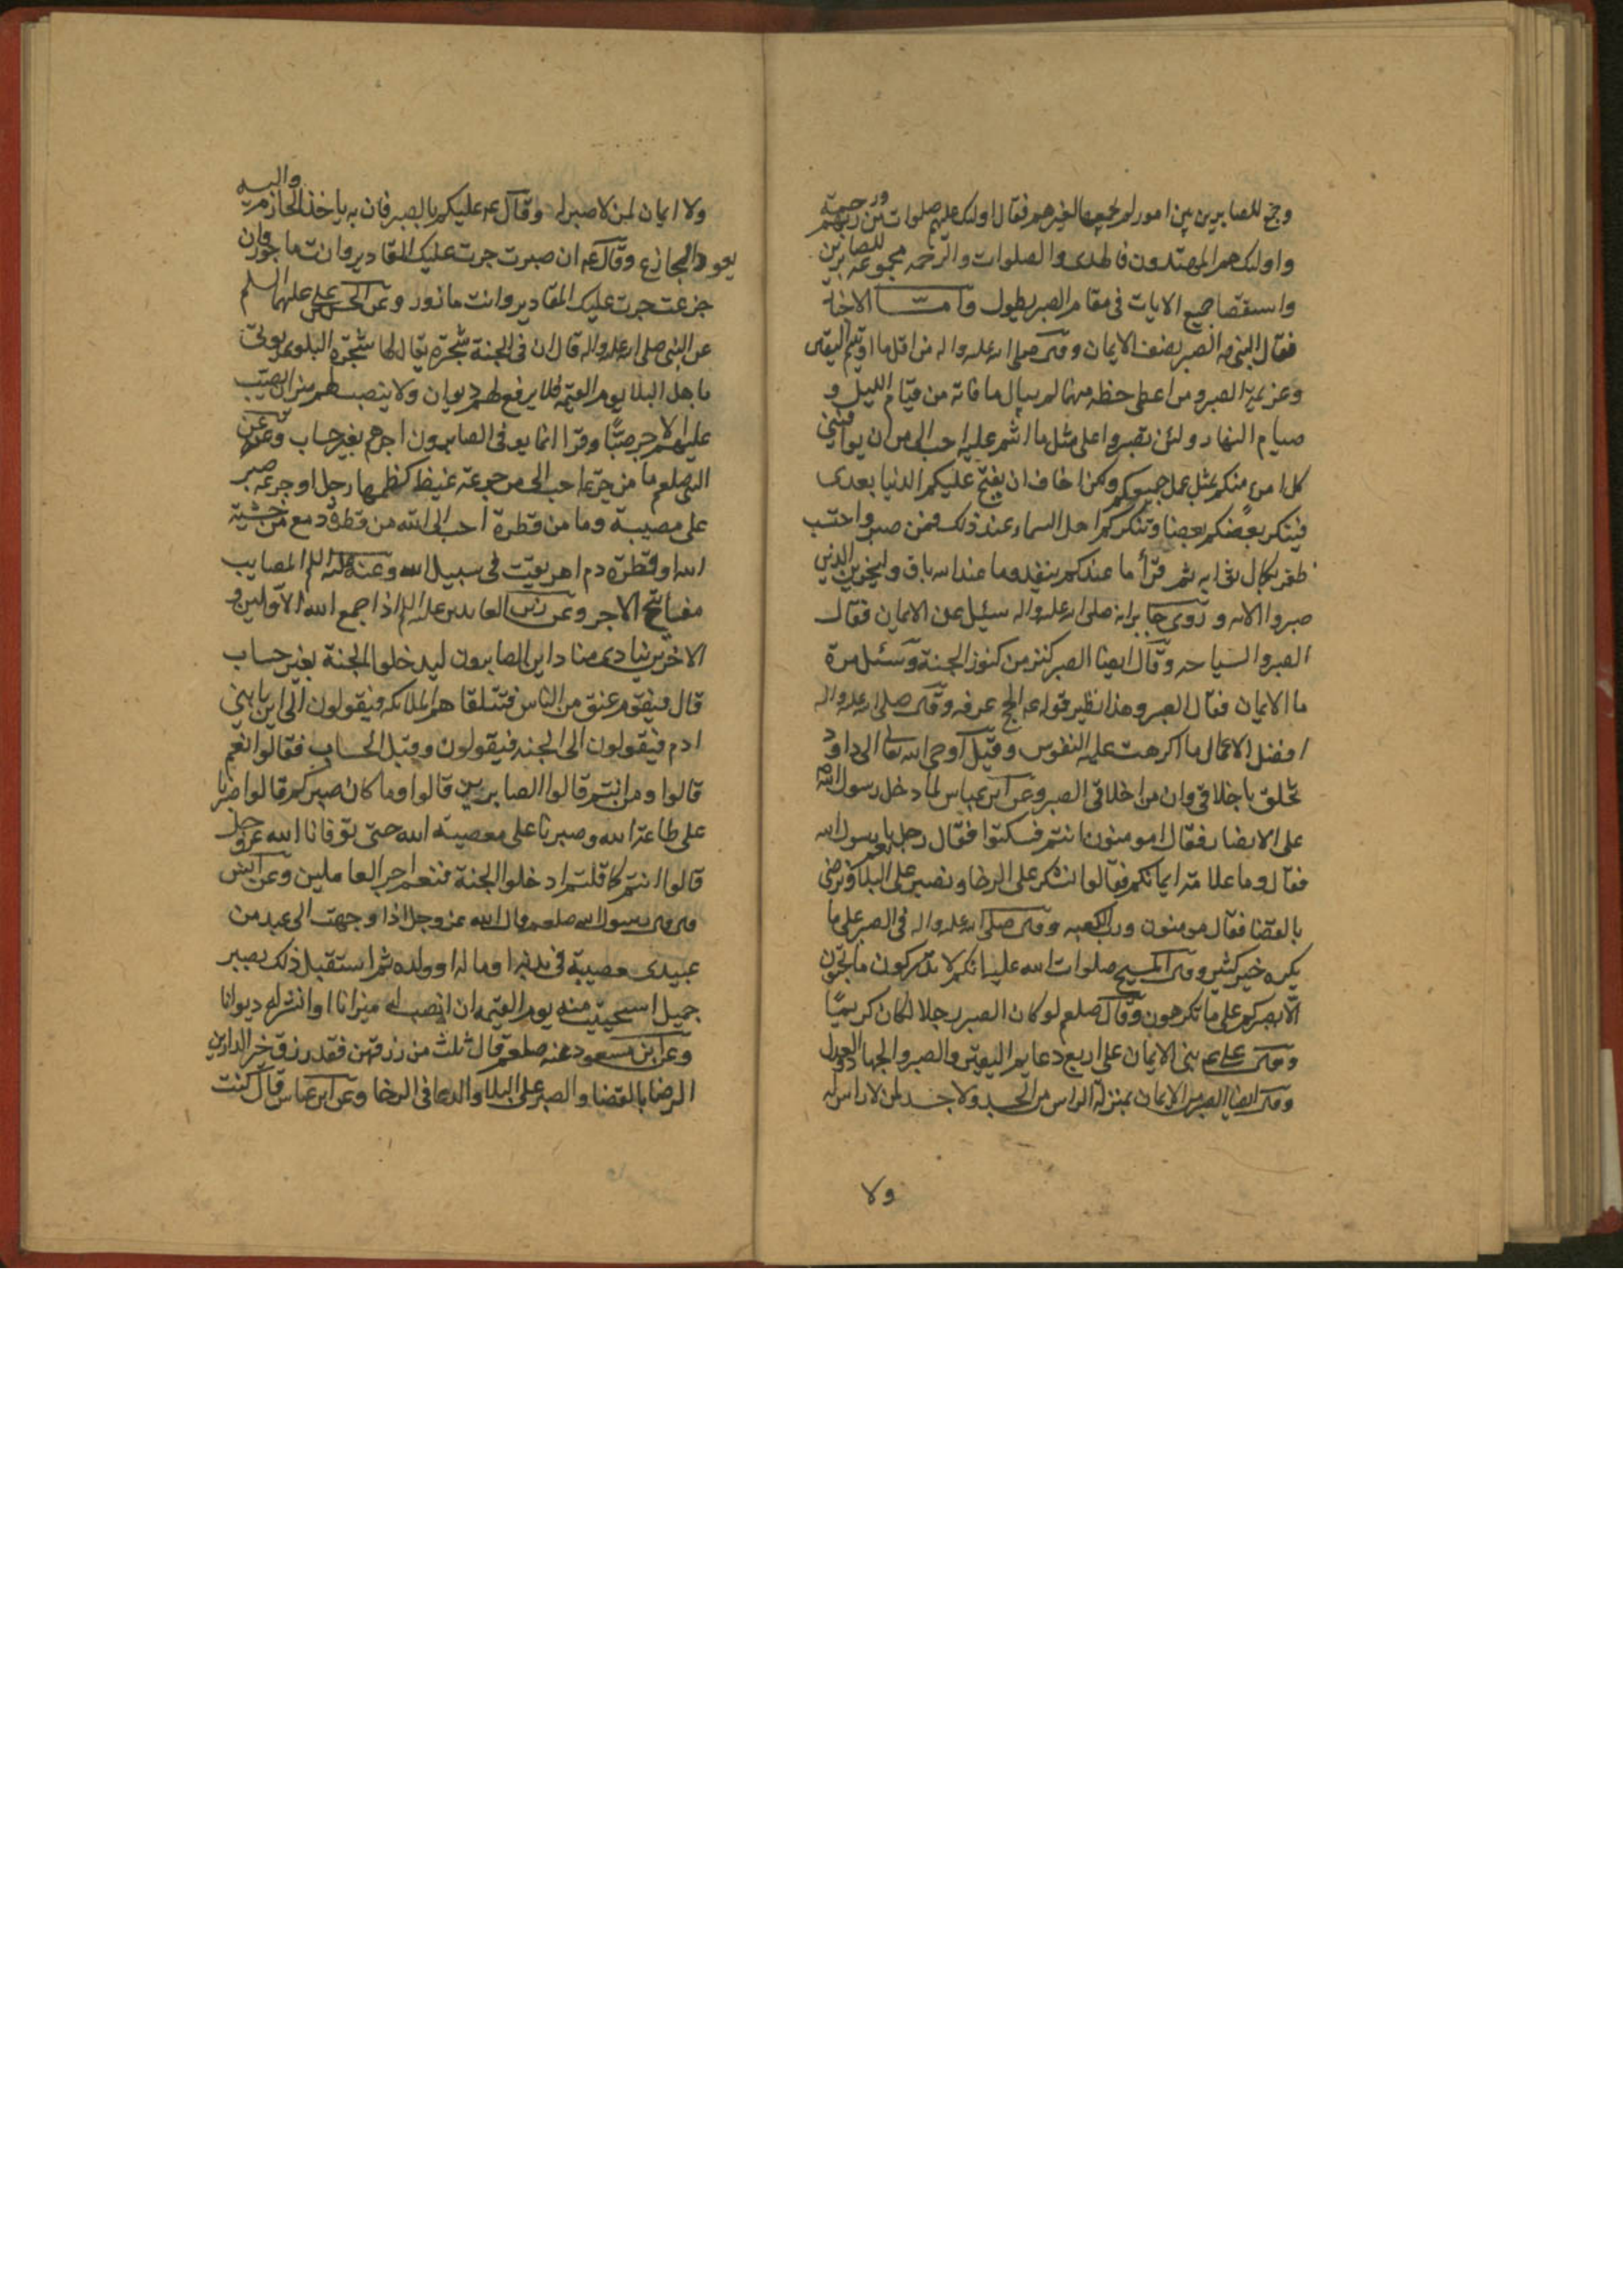 وجمع للصابرين بين امور لم يجمعها لغيرهم فقال اولئك عليهم صلوات من ربهم ورحمة
واولئك هم المهتدون فالهدى والصلوات والرحمه مجموعه للصابرين
واستقصا جميع الايات في مقام الصبر يطول وامـــا الاخبار
فقال النبي صه الصبر نصف الايمان وقال صلى الله عليه واله من اقل ما اوتيتم اليقين
وعزيمة الصبر ومن اعطى حظه منهما لم يبال ما فاته من قيام الليل و
صيام النهار ولئن تصبروا على مثل ما انتم عليه احب الي من ان يوافيني
كل امرء منكم بمثل عمل جميعكم ولكن اخاف ان يفتح عليكم الدنيا بعدى
فينكر بعضكم بعضا وينكركم اهل السماء عند ذلك فمن صبر واحتسب
ظفر بكمال ثوابه ثم قرأ ما عندكم ينفد وما عند الله باق ولنجزين الذين
صبروا الايه وروى جابر انه صلى الله عليه واله سئيل عن الايمان فقال
الصبر والسياحه وقال ايضا الصبر كنز من كنوز الجنة وسئل مرة
ما الايمان فقال الصبر وهذا نظير قوله عه الحج عرفه وقال صلى الله عليه واله
افضل الاعمال ما اكرهت عليه النفوس وقيل اوحى الله تعالى الى داود
تخلق باخلاقي وان من اخلاقي الصبر وعن ابن عباس لما دخل رسول الله ص
على الانصار فقال امومنون انتم فسكتوا فقال رجل نعم يا رسول الله
فقال وما علامة ايمانكم فقالوا نشكر على الرخا ونصبر على البلا ونرضى
بالقضا فقال مومنون ورب الكعبه وقال صلى الله عليه واله في الصبر على ما
يكره خير كثير وقال المسيح صلوات الله عليه انكم لا تدركون ما تحبون
الا بصبركم على ما تكرهون وقال صلعم لو كان الصبر رجلا لكان كريمًا
وقال علي عه بني الايمان على اربع دعايم اليقين والصبر والجهاد والعدل
وقال ايضا الصبر من الايمان بمنزلة الراس من الجسد ولا جسد لمن لا راس له
ولا
ولا ايمان لمن لا صبر له وقال عه عليكم بالصبر فان به ياخذ الحازم واليه
يعود الجازع وقال عه ان صبرت جرت عليك المقادير وانت ماجور وان
جزعت جرت عليك المقادير وانت مازور وعن الحسن بن علي عليهما السلم
عن النبي صلى الله عليه واله قال ان في الجنة شجرة يقال لها شجرة البلوى يوتى
باهل البلا يوم القيمه فلا يرفع لهم ديوان ولا ينصب لهم ميزان يصب
عليهم الاجر صبًّا وقرا انما يوفى الصابرون اجرهم بغير حساب وعن
النبي صلعم ما من جرعة احب الى من جرعة غيظ كظمها رجل او جرعة صبر
على مصيبة وما من قطرة احب الى الله من قطرة دمع من خشية
الله او قطرة دم اهريقت في سبيل الله وعنه عليه السلم المصايب
مفاتيح الاجر وعن زين العابدين عليه السلم اذا جمع الله الاولين و
الاخرين ينادى مناد اين الصابرون ليدخلوا الجنة بغير حساب
قال فيقوم عنق من الناس فتتلقاهم الملائكه فيقولون الى اين يا بني
ادم فيقولون الى الجنه فيقولون وقبل الحساب فقالوا نعم
قالوا ومن انتم قالوا الصابرين قالوا وما كان صبركم قالوا صبرنا
على طاعة الله وصبرنا على معصية الله حتى توفانا الله عز وجل
قالوا انتم كما قلتم ادخلوا الجنة فنعم اجر العاملين وعن انس
قال قال رسول الله صلعم قال الله عز وجل اذا وجهت الى عبد من
عبيدى مصيبة في بدنه او ماله او ولده ثم استقبل ذلك بصبر
جميل استحييت منه يوم القيمه ان انصب له ميزانا او انشر له ديوانا
وعن ابن مسعود عنه صلعم قال ثلث من رزقهن فقد رزق خير الدارين
الرضا بالقضا والصبر على البلا والدعا في الرخا وعن ابن عباس قال كنت